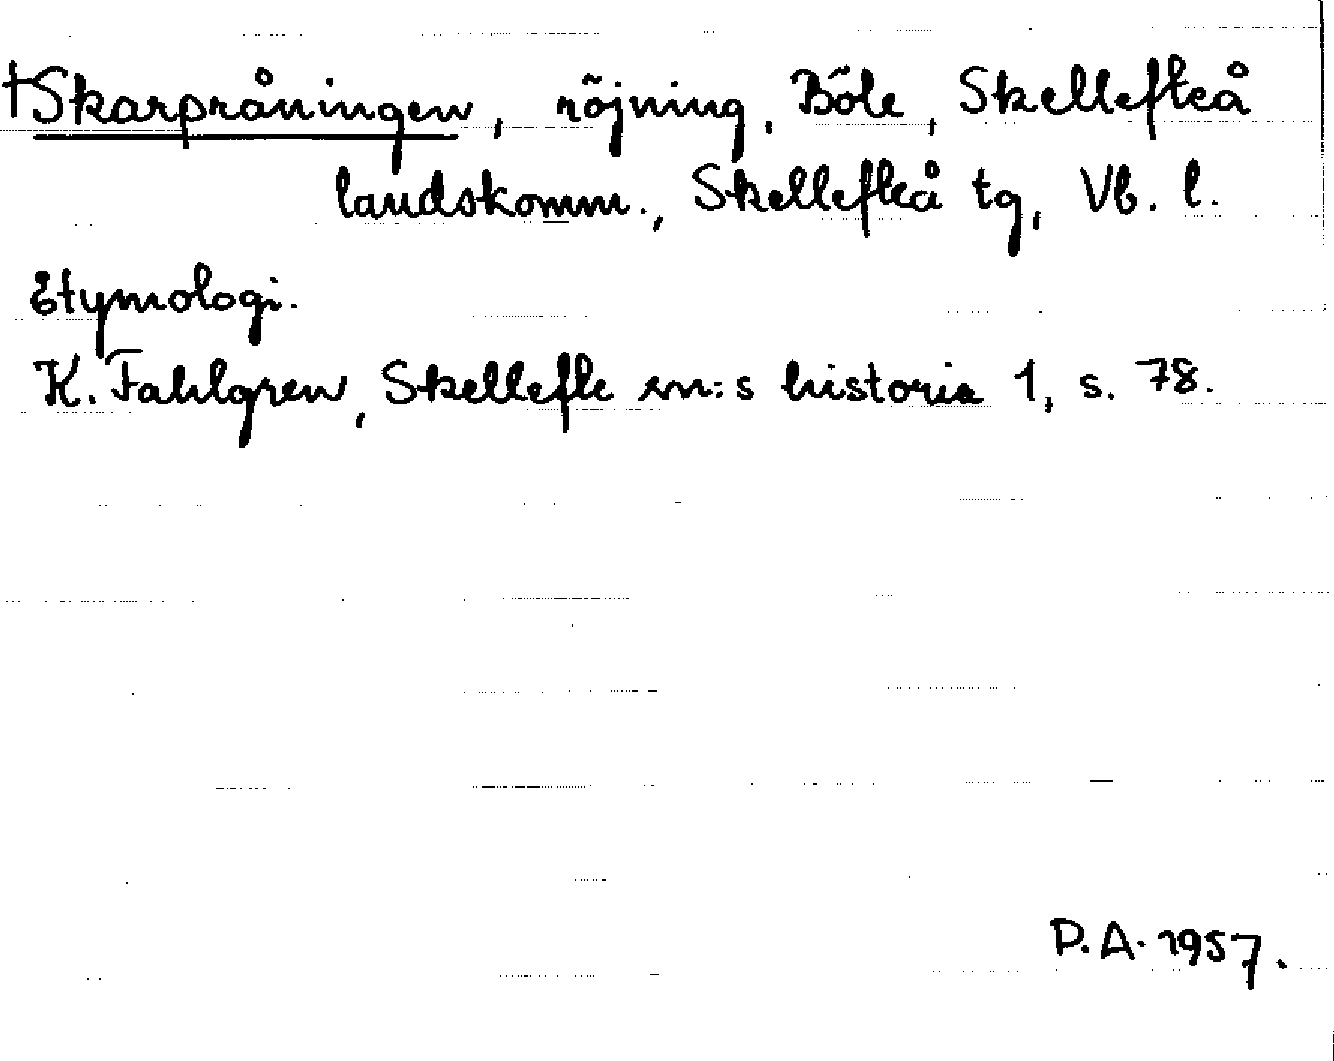 †Skarpråningen, röjning, Böle, Skellefteå
landskomm., Skellefteå tg, Vb. l.
Etymologi.
K. Fahlgren, Skellefte sn:s historia 1, s. 78.
P.A. 1957.